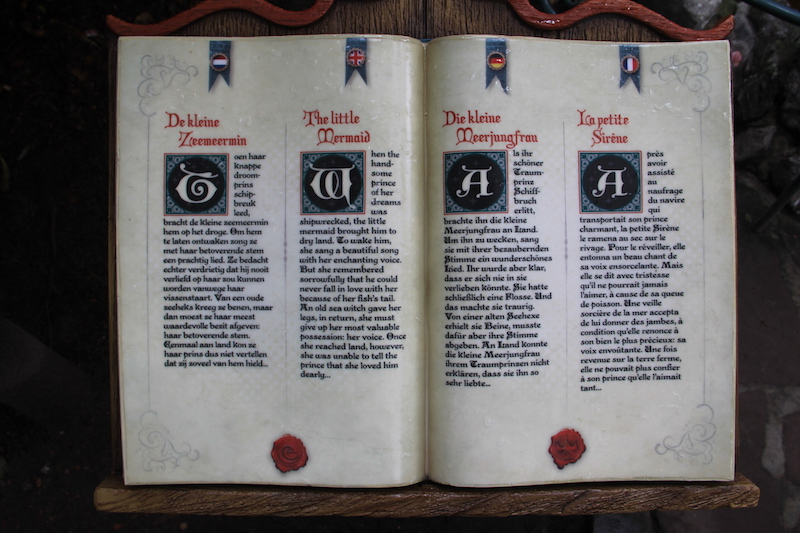 De kleine
Zeemeermin
Toen haar
knappe
droom-
prins
schip-
breuk
leed,
bracht de kleine zeemeermin
hem op het droge. Om hem
te laten ontwaken zong ze
met haar betoverende stem
een prachtig lied. Ze bedacht
echter verdrietig dat hij nooit
verliefd op haar zou kunnen
worden vanwege haar
vissenstaart. Van een oude
zeeheks kreeg ze benen, maar
dan moest ze haar meest
waardevolle bezit afgeven:
haar betoverende stem.
Eenmaal aan land kon ze
haar prins dus niet vertellen
dat zij zoveel van hem hield...
The little
Mermaid
When the
hand-
some
prince
of her
dreams
was
shipwrecked, the little
mermaid brought him to
dry land. To wake him,
she sang a beautiful song
with her enchanting voice.
But she remembered
sorrowfully that he could
never fall in love with her
because of her fish's tail.
An old sea witch gave her
legs, in return, she must
give up her most valuable
possession: her voice. Once
she reached land, however,
she was unable to tell the
prince that she loved him
dearly...
Die kleine
Meerjungfrau
Als ihr
schöner
Traum-
prinz
Schiff-
bruch
erlitt,
brachte ihn die kleine
Meerjungfrau an Land.
Um ihn zu wecken, sang
sie mit ihrer bezaubernden
Stimme ein wunderschönes
Lied. Ihr wurde aber klar,
dass er sich nie in sie
verlieben könnte. Sie hatte
schließlich eine Flosse. Und
das machte sie traurig.
Von einer alten Seehexe
erhielt sie Beine, musste
dafür aber ihre Stimme
abgeben. An Land konnte
die kleine Meerjungfrau
ihrem Traumprinzen nicht
erklären, dass sie ihn so
sehr liebte...
La petite
Sirène
Après
avoir
assisté
au
naufrage
du navire
qui
transportait son prince
charmant, la petite Sirène
le ramena au sec sur le
rivage. Pour le réveiller, elle
entonna un beau chant de
sa voix ensorcelante. Mais
elle se dit avec tristesse
qu'il ne pourrait jamais
l'aimer, à cause de sa queue
de poisson. Une veille
sorcière de la mer accepta
de lui donner des jambes, à
condition qu'elle renonce à
son bien le plus précieux: sa
voix envoûtante. Une fois
revenue sur la terre ferme,
elle ne pouvait plus confier
à son prince qu'elle l'aimait
tant...